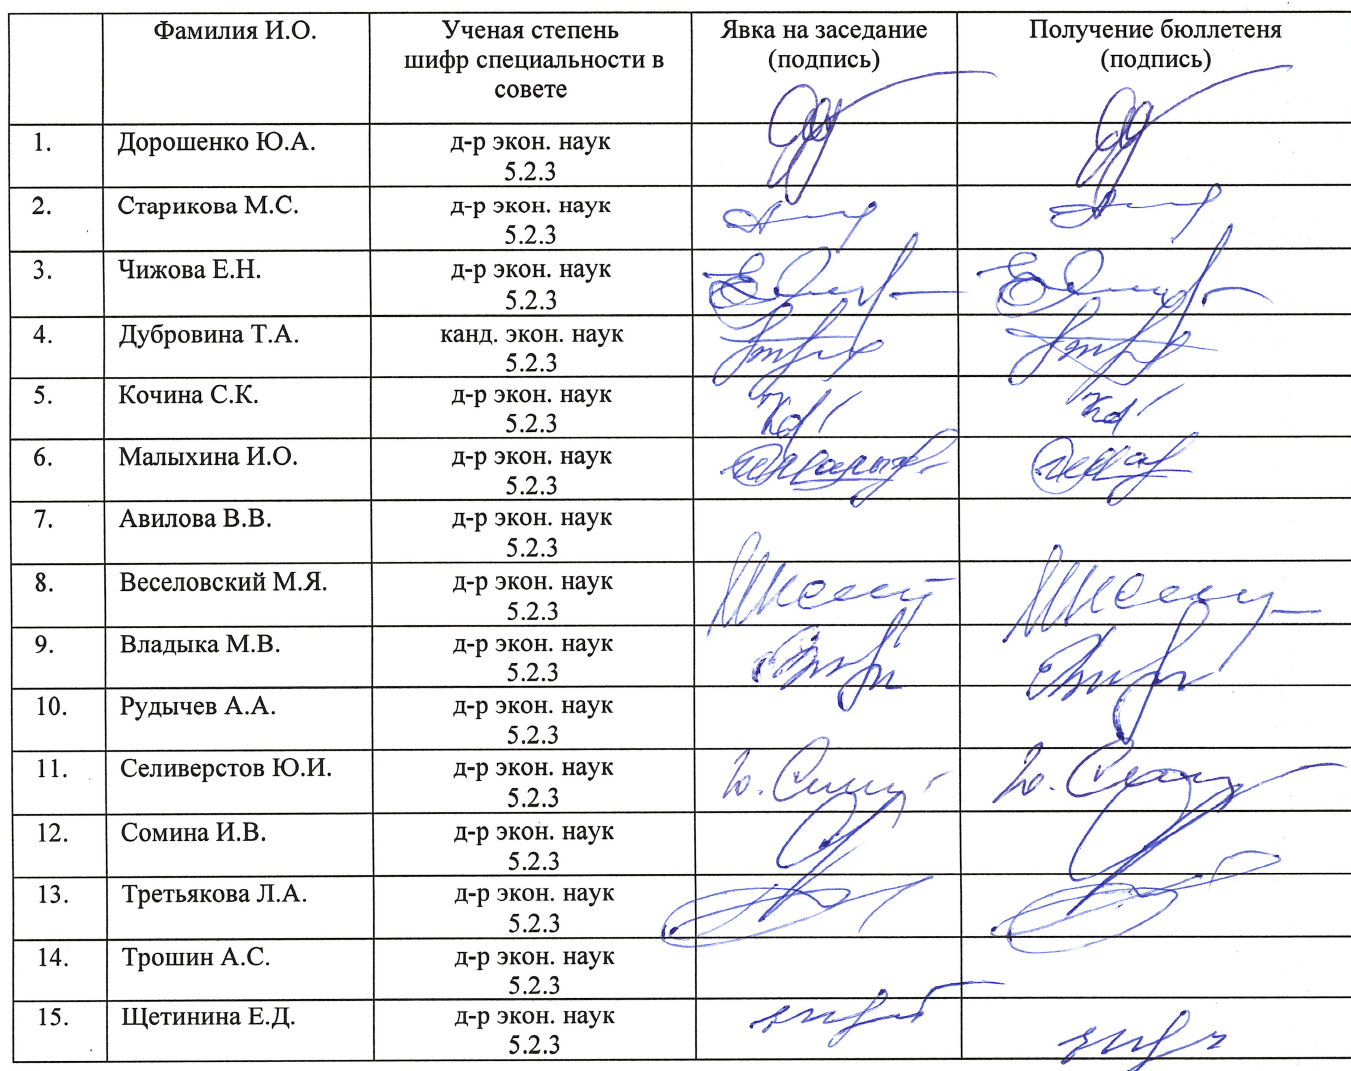 Фамилия И.О.
Ученая степень
шифр специальности в
совете
Явка на заседание
(подпись)
Получение бюллетеня
(подпись)
1.
Дорошенко Ю.А.
д-р экон. наук
5.2.3
2.
Старикова М.С.
д-р экон. наук
5.2.3
3.
Чижова Е.Н.
д-р экон. наук
5.2.3
4.
Дубровина Т.А.
канд. экон. наук
5.2.3
5.
Кочина С.К.
д-р экон. наук
5.2.3
6.
Малыхина И.О.
д-р экон. наук
5.2.3
7.
Авилова В.В.
д-р экон. наук
5.2.3
8.
Веселовский М.Я.
д-р экон. наук
5.2.3
9.
Владыка М.В.
д-р экон. наук
5.2.3
10.
Рудычев А.А.
д-р экон. наук
5.2.3
11.
Селиверстов Ю.И.
д-р экон. наук
5.2.3
12.
Сомина И.В.
д-р экон. наук
5.2.3
13.
Третьякова Л.А.
д-р экон. наук
5.2.3
14.
Трошин А.С.
д-р экон. наук
5.2.3
15.
Щетинина Е.Д.
д-р экон. наук
5.2.3